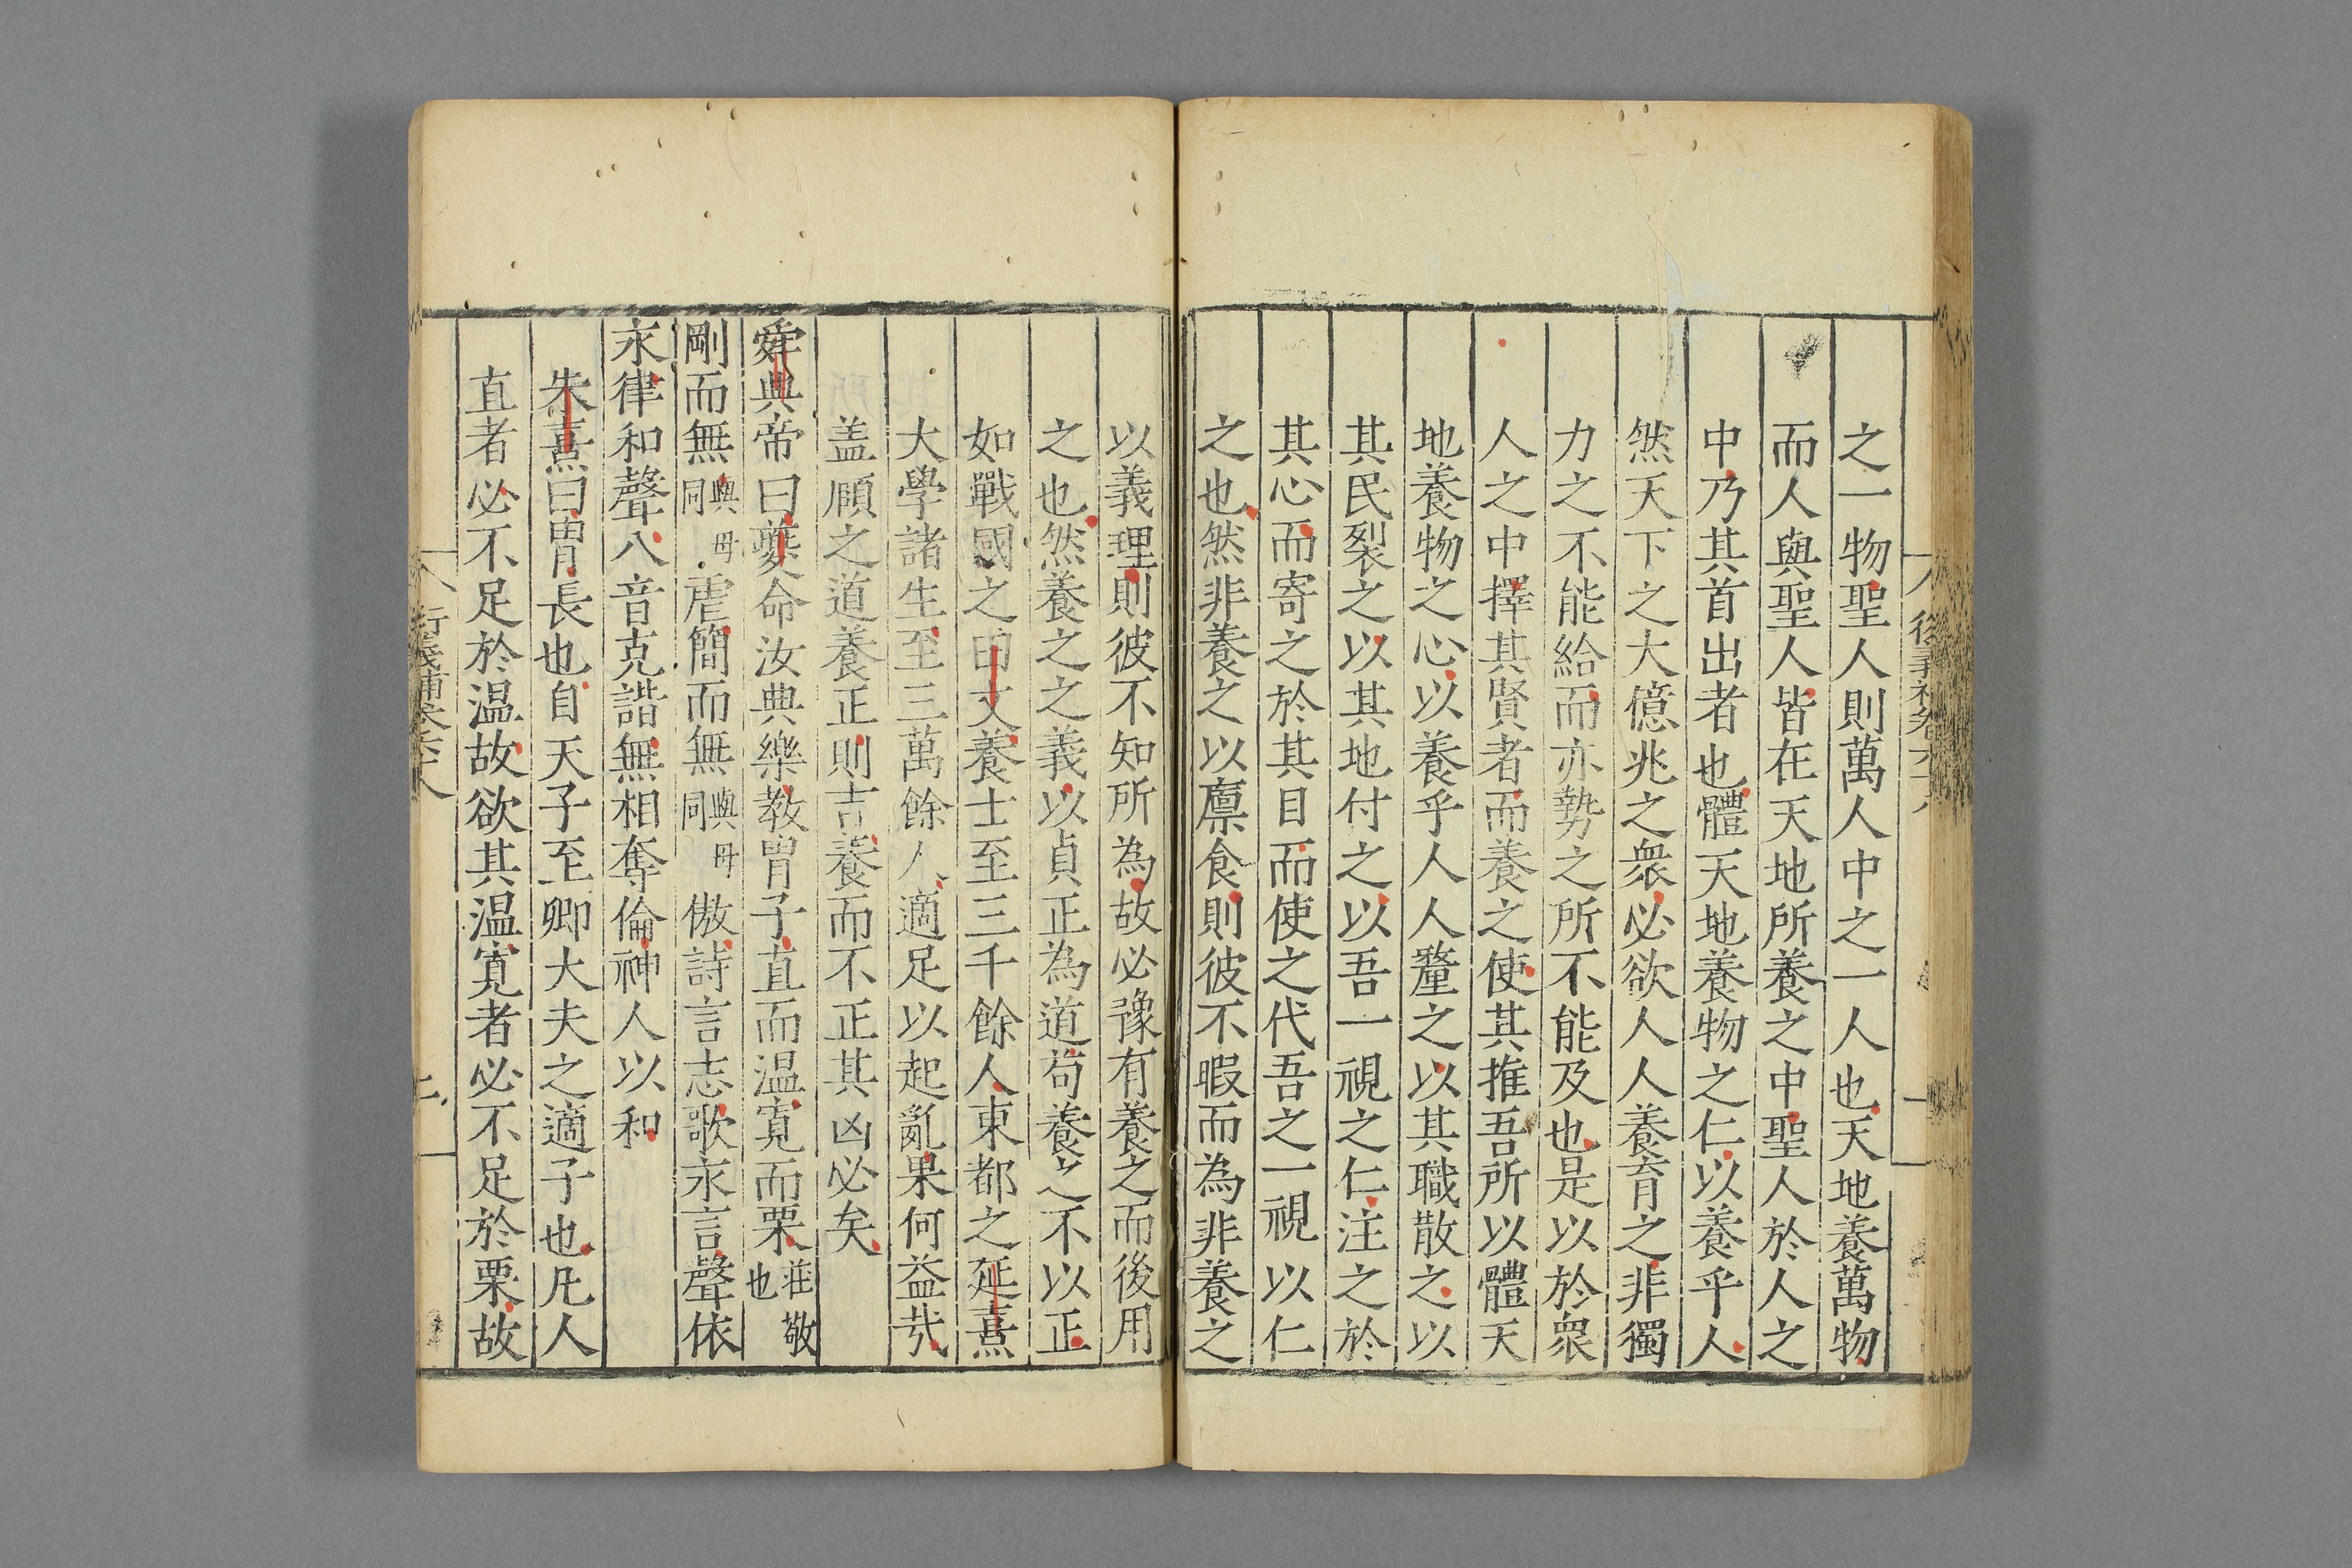 之一物聖人則萬人中之一人也天地養萬物
而人與聖人皆在天地所養之中聖人於人之
中乃其首出者也體天地養物之仁以養乎人
然天下之大億兆之衆必欲人人養育之非獨
力之不能給而亦勢之所不能及也是以於衆
人之中擇其賢者而養之使其推吾所以體天
地養物之心以養乎人人釐之以其職散之以
其民裂之以其地付之以吾一視之仁注之於
其心而寄之於其目而使之代吾之一視以仁
之也然非養之以廩食則彼不暇而為非養之
以義理則彼不知所為故必豫有養之而後用
之也然養之之義以貞正為道苟養之不以正
如戰國之田文養士至三千餘人東都之延熹
大學諸生至三萬餘人適足以起亂果何益㢤
盖頤之道養正則吉養而不正其凶必矣
舜典帝曰夔命汝典樂教冑子直而温寬而栗莊敬也
剛而無與毋同虐簡而無與毋同傲詩言志歌永言聲依
永律和聲八音克諧無相奪倫神人以和
朱熹曰冑長也自天子至卿大夫之適子也凡人
直者必不足於温故欲其温寬者必不足於栗故